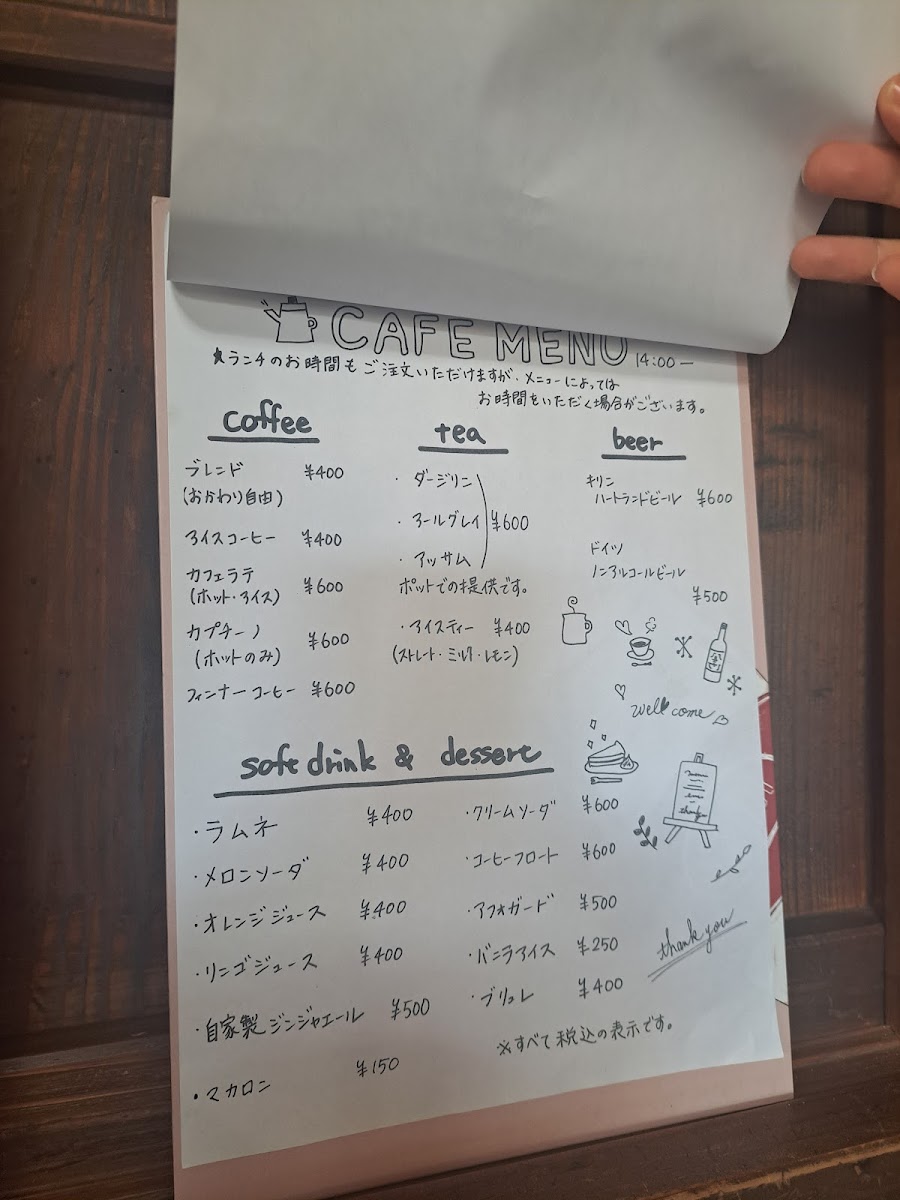 CAFE MENU 14:00 —
★ランチのお時間もご注文いただけますが、メニューによっては
お時間をいただく場合がございます。
coffee
ブレンド ¥400
(おかわり自由)
アイスコーヒー ¥400
カフェラテ
(ホット・アイス) ¥600
カプチーノ
(ホットのみ) ¥600
フィンナーコーヒー ¥600
tea
・ダージリン
・アールグレイ ¥600
・アッサム
ポットでの提供です。
・アイスティー ¥400
(ストレート・ミルク・レモン)
beer
キリン
ハートランドビール ¥600
ドイツ
ノンアルコールビール
¥500
well come
soft drink & dessert
・ラムネ ¥400
・メロンソーダ ¥400
・オレンジジュース ¥400
・リンゴジュース ¥400
・自家製ジンジャエール ¥500
・マカロン ¥150
・クリームソーダ ¥600
・コーヒーフロート ¥600
・アフォガード ¥500
・バニラアイス ¥250
・ブリュレ ¥400
※すべて税込の表示です。
thank you